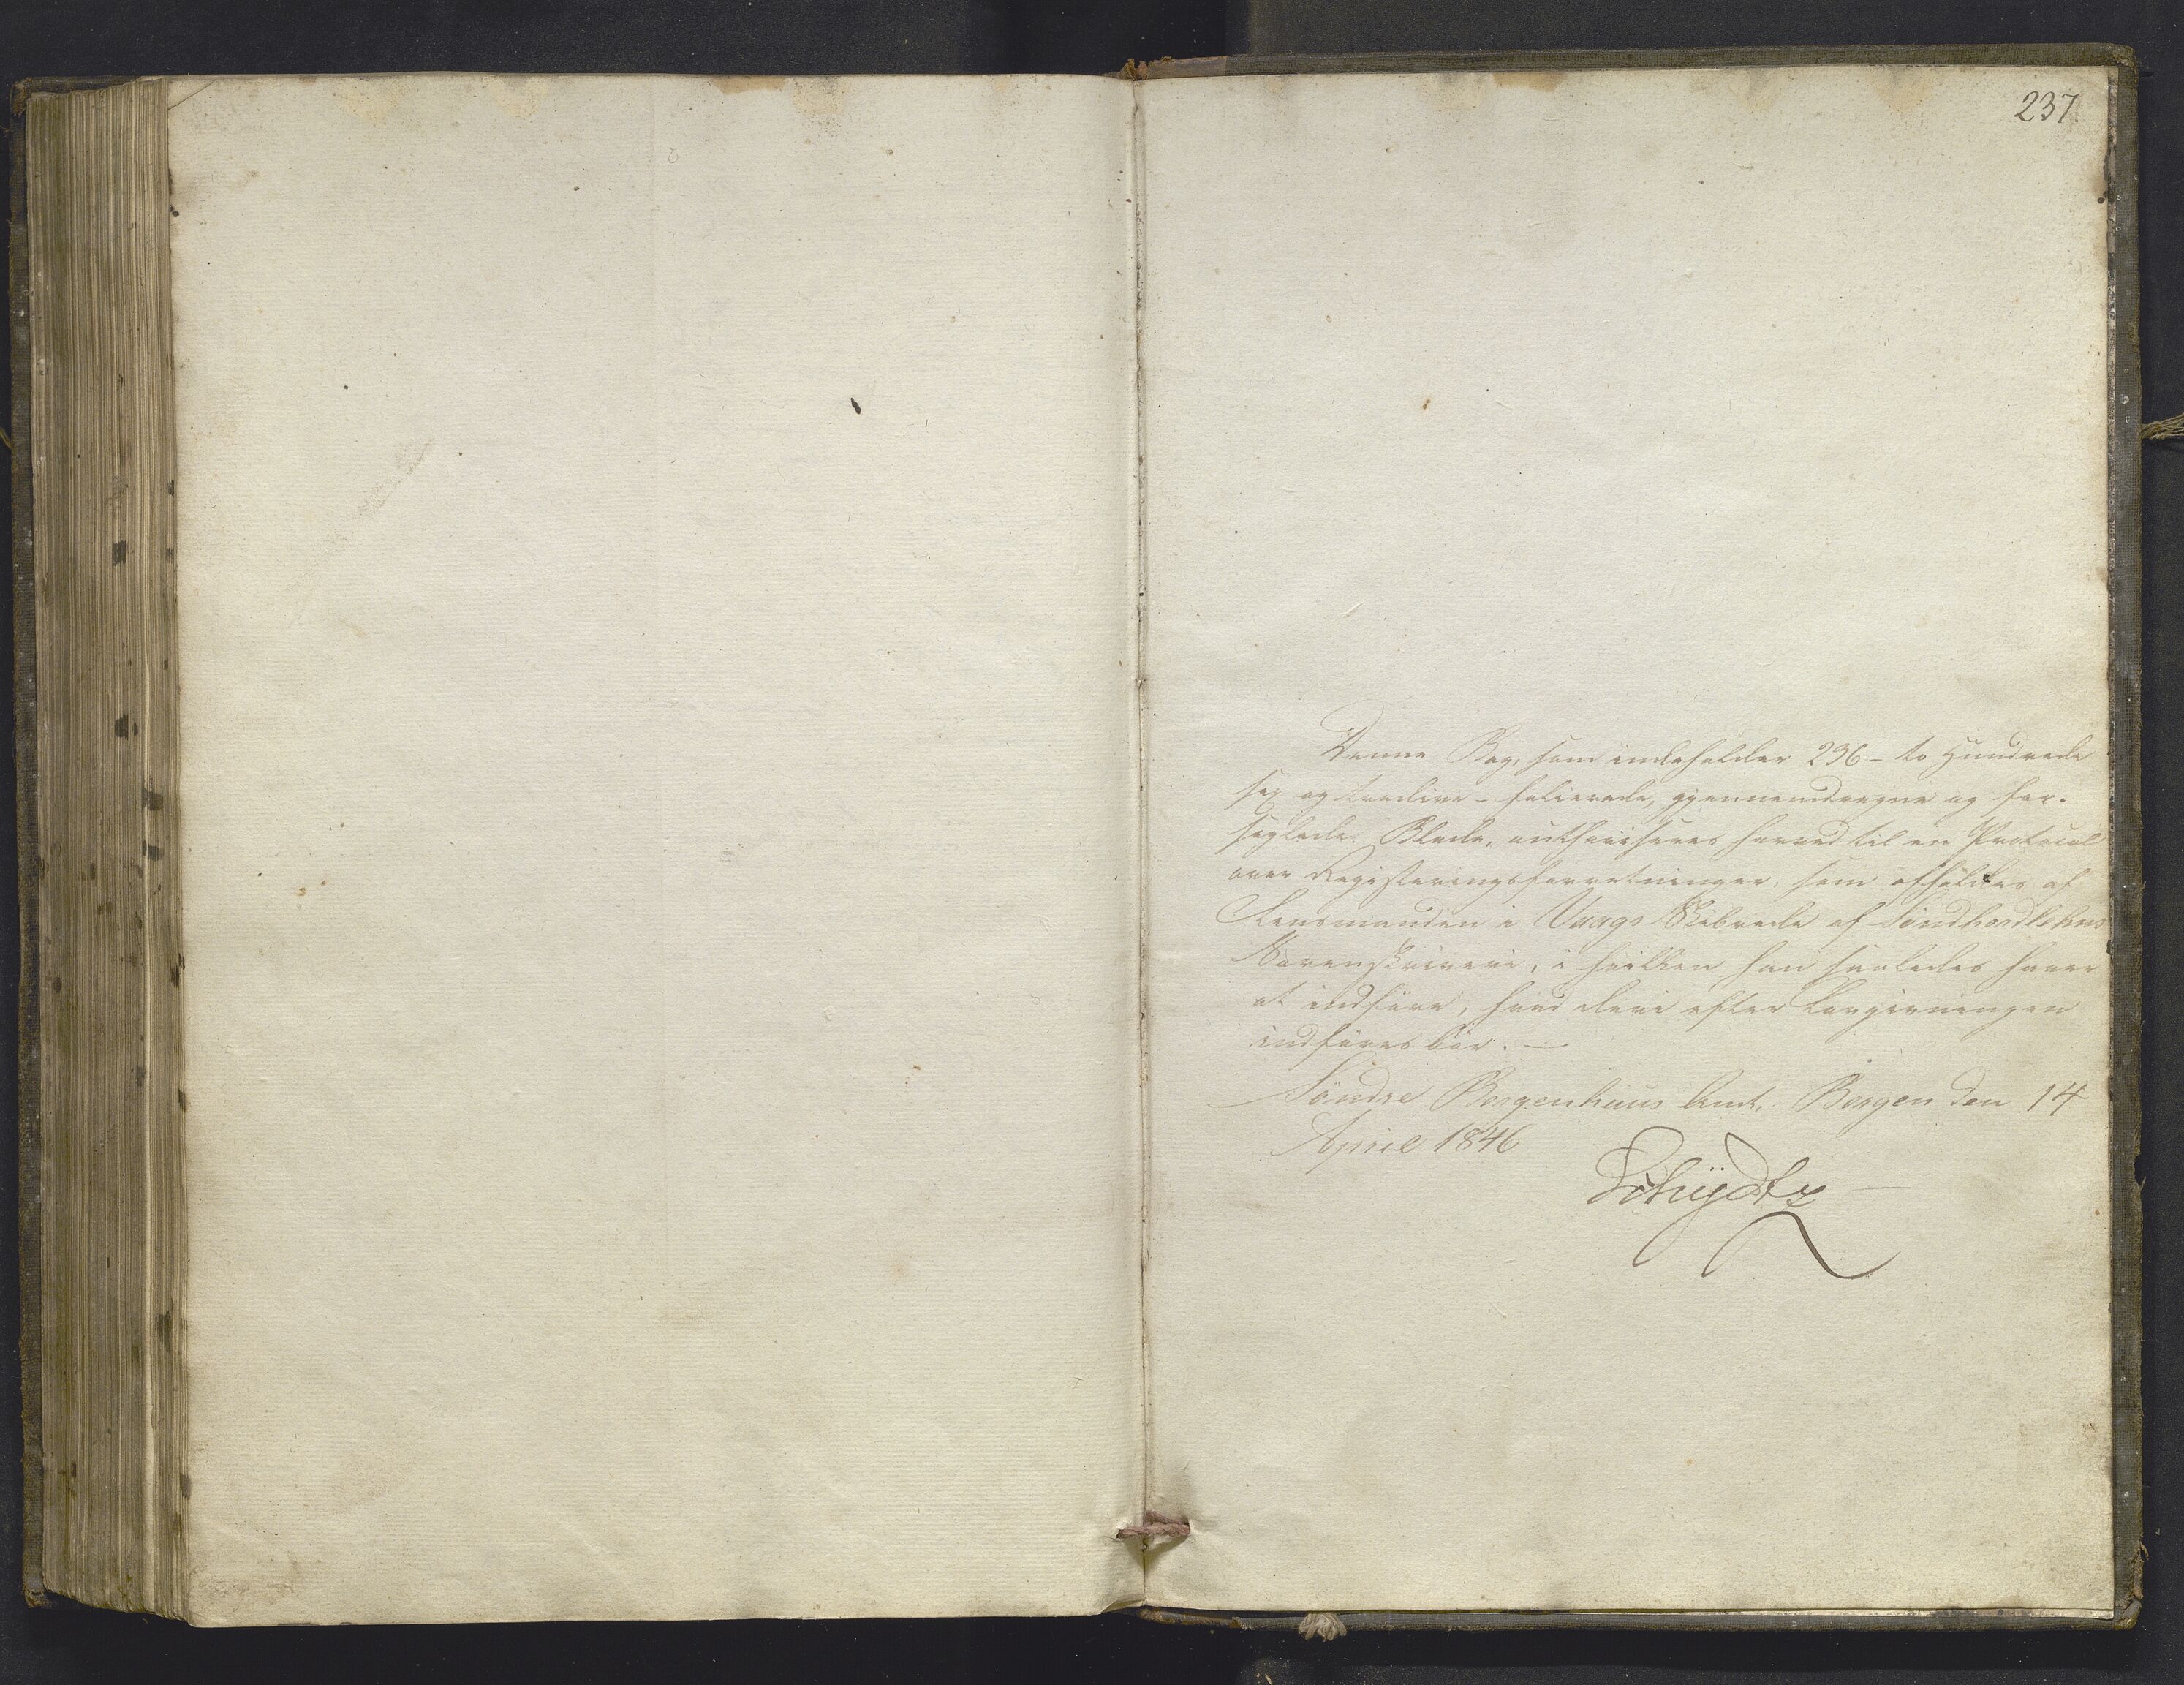 237.
Denne Bog, som indeholder 236 - to Hundrede
sex og tredive - folierede, gjennemdragne og for-
seglede Blade, authoriseres herved til en Protocol
over Registeringsforretninger, som afholdes af
Lensmanden i Vaags Skibrede af Söndhordlehns
Sorenskriveri, i hvilken han saaledes haver
at indföre, hvad deri efter Lovgivningen
indföres bör. -
Söndre Bergenhuus Amt, Bergen den 14
April 1846
Schydtz